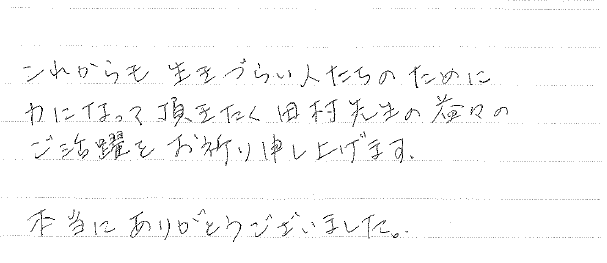 これからも 生きづらい人たちの ために
力になって 頂きたく 田村先生の 益々の
ご活躍を お祈り申し上げます.
本当に ありがとうございました。